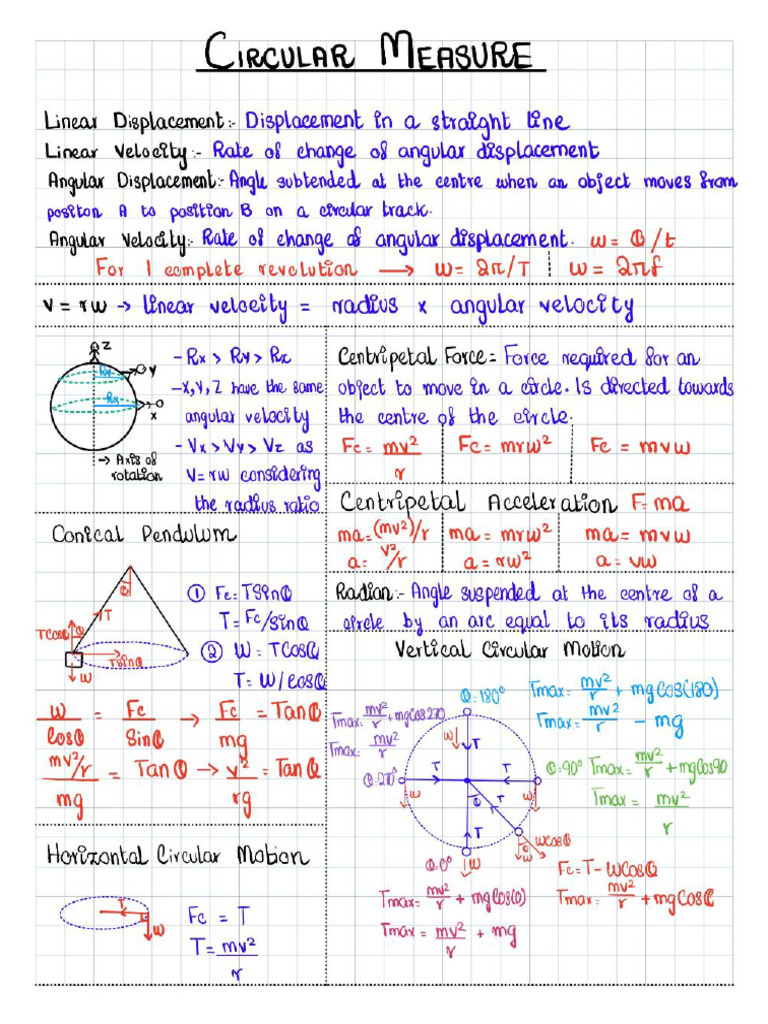 CIRCULAR MEASURE
Linear Displacement:- Displacement in a straight line
Linear Velocity:- Rate of change of angular displacement
Angular Displacement:- Angle subtended at the centre when an object moves from
positon A to position B on a circular track.
Angular Velocity:- Rate of change of angular displacement. ω = θ/t
For 1 complete revolution → ω = 2π/T ω = 2πf
v = rω → linear velocity = radius x angular velocity
Z
Ry
Y
Rx
X
→ Axis of
rotation
- Rx > Ry > Rx
- X, Y, Z have the same
angular velocity
- Vx > Vy > Vz as
V = rω considering
the radius ratio
Centripetal Force = Force required for an
object to move in a circle. Is directed towards
the centre of the circle.
Fc = mv²/r Fc = mrω² Fc = mvω
Centripetal Acceleration F = ma
ma = (mv²)/r ma = mrω² ma = mvω
a = v²/r a = rω² a = vω
Radian:- Angle suspended at the centre of a
circle by an arc equal to its radius
Conical Pendulum
θ
T
TCosθ
θ
TSinθ
W
① Fc = TSinθ
T = Fc/Sinθ
② W = TCosθ
T = W/Cosθ
W/Cosθ = Fc/Sinθ → Fc/mg = Tanθ
mv²/r/mg = Tanθ → v²/rg = Tanθ
Horizontal Circular Motion
T
W
Fc = T
T = mv²/r
Vertical Circular Motion
θ=180°
Tmax = mv²/r + mgCos(180)
Tmax = mv²/r - mg
Tmax = mv²/r + mgCos270
Tmax = mv²/r
θ=270°
θ=90°
Tmax = mv²/r + mgCos90
Tmax = mv²/r
W
T
T
T
W
θ
T
W
T
WCosθ
θ
W
θ=0°
W
Tmax = mv²/r + mgCos(0)
Tmax = mv²/r + mg
Fc = T - WCosθ
Tmax = mv²/r + mgCosθ